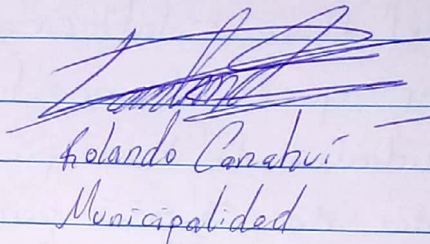 Rolando Canahuí
Municipalidad